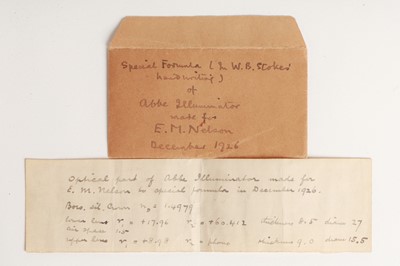 Special Formula (In W.B. Stokes'
handwriting)
of
Abbe Illuminator
made for
E. M. Nelson
December 1926
Optical part of Abbe Illuminator made for
E. M. Nelson to special formula in December 1926.
Boro. sil. Crown
lower lens r, = +17.96 r₂ = +60.412 thickness 8.5 diam 27
air space
upper lens r, = +8.98 r₂ = plano thickness 9.0 diam 15.5